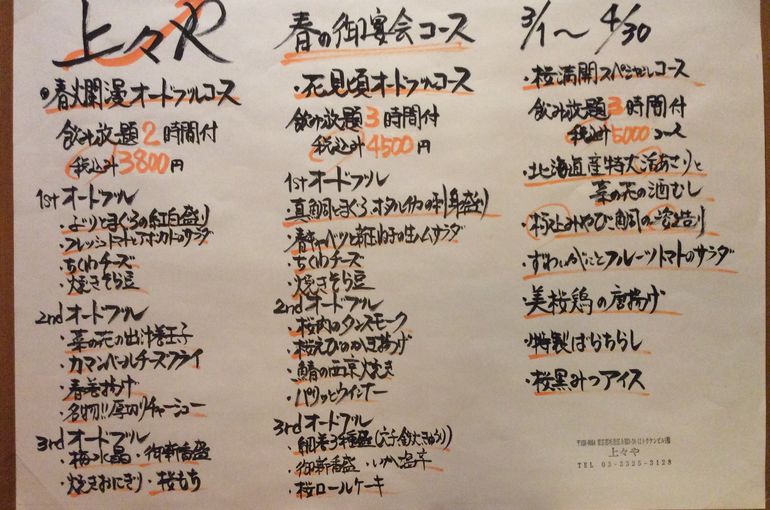 上々や
春の御宴会コース
3/1〜4/30
・春爛漫オードブルコース
飲み放題2時間付
税込み3800円
1stオードブル
・ぶりとまぐろの紅白盛り
・フレッシュトマトとアボカドのサラダ
・ちくわチーズ
・焼きそら豆
2ndオードブル
・菜の花の出汁巻玉子
・カマンベールチーズフライ
・春巻揚げ
・名物!!厚切りチャーシュー
3rdオードブル
・梅水晶・御新香盛
・焼きおにぎり・桜もち
・花見頃オードブルコース
飲み放題3時間付
税込み4500円
1stオードブル
・真鯛とまぐろ、ホタルイカの刺身盛り
・春キャベツと新玉ねぎの生ハムサラダ
・ちくわチーズ
・焼きそら豆
2ndオードブル
・桜肉のタンスモーク
・桜えびのかき揚げ
・鯖の西京焼き
・パリッとウインナー
3rdオードブル
・細巻3種盛(穴子、鉄火、きゅうり)
・御新香盛・いか塩辛
・桜ロールケーキ
・桜満開スペシャルコース
飲み放題3時間付
税込み5000円
・北海道産特大活あさりと
菜の花の酒むし
・みやび鯛の姿造り
・ずわいがにとフルーツトマトのサラダ
・美桜鶏の唐揚げ
・特製ばらちらし
・桜黒みつアイス
上々や
TEL 03-3325-3128